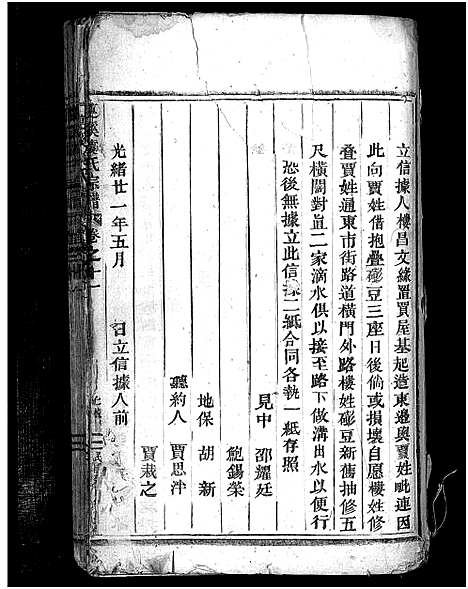 立信據人樓昌文緣置買屋基起造東邊與賈姓毗連因
此向賈姓借抱疊磡豆三座日後倘或損壞自愿樓姓修
疊賈姓通東市街路道橫門外路樓姓磡豆新舊抽修五
尺橫闊對直二家滴水俱以接至路下做溝出水以便行
恐後無據立此信據二紙合同各執一紙存照
見中 邵耀廷
鮑錫榮
地保 胡新
聽約人 賈思沖
賈裁之
光緒廿一年五月 日立信據人前
氏宗譜卷之十一